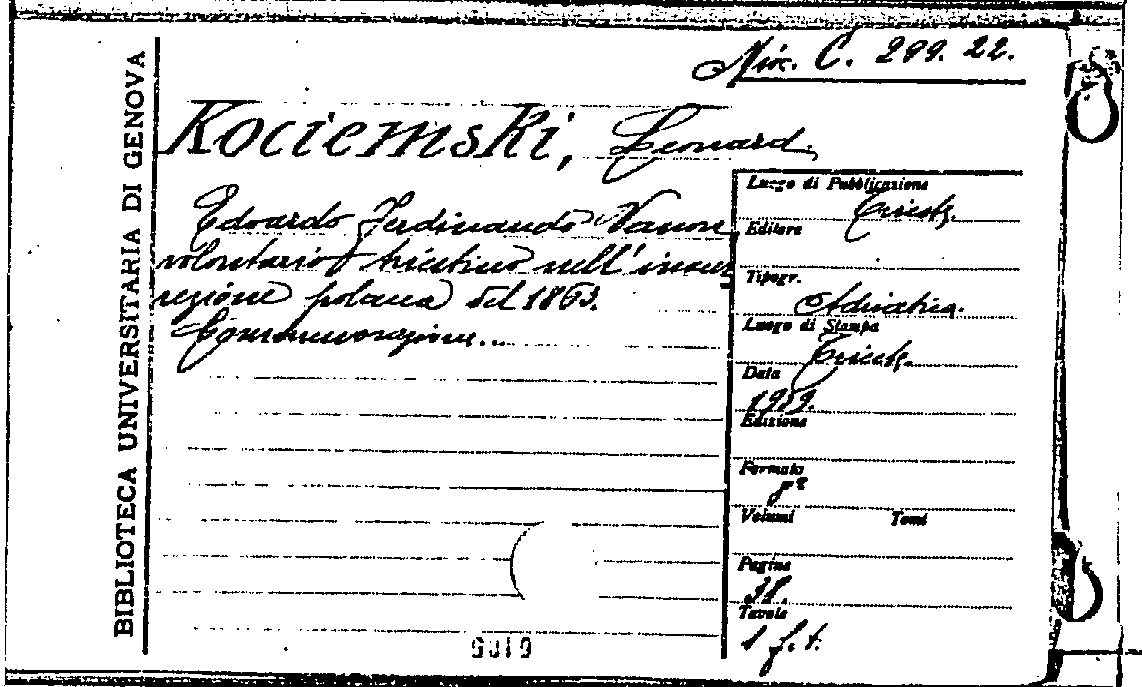 BIBLIOTECA UNIVERSITARIA DI GENOVA
Misc. C. 299. 22.
Kociemski, Leonard.
Edoardo Ferdinando Vanon
volontario triestino nell'insur
rezione polacca del 1863.
Commemorazione...
Luogo di Pubblicazione
Trieste.
Editore
Tipogr.
Adriatica.
Luogo di Stampa
Trieste.
Data
1939.
Edizione
Formato
8º
Volumi Tomi
Pagine
38.
Tavole
1 f. t.